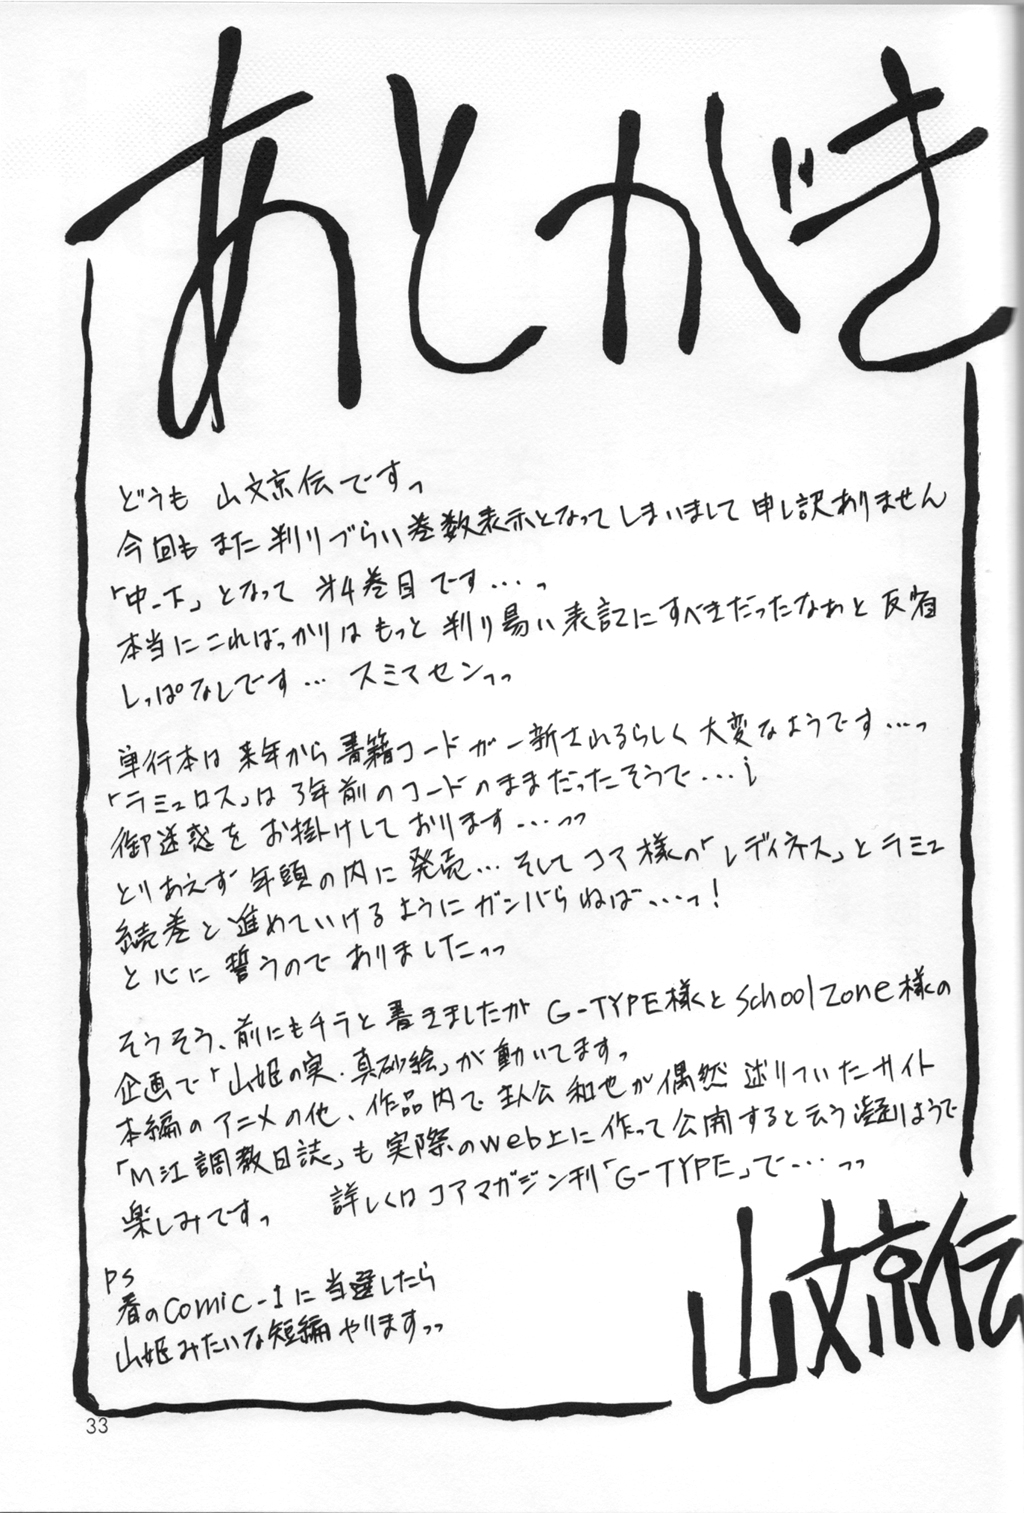 あとがき
どうも 山文京伝ですっ
今回も また 判りづらい巻数表示となってしまいまして 申し訳ありません
「中-下」となって 第4巻目です…っ
本当にこればっかりは もっと 判り易い表記にすべきだったなぁと 反省
しっぱなしです… スミマセンっっ
単行本は 来年から 書籍コードが一新されるらしく 大変なようです…っ
「ラミュロス」は 3年前のコードのままだったそうで…¡
御迷惑を お掛けしております…っっ
とりあえず 年頭の内に 発売… そして コア様の「レディネス」と ラミュ
続巻と 進めていけるように ガンバらねば…っ!
と心に 誓うので ありましたっっ
そうそう、前にもチラと 書きましたが G-TYPE様と School Zone様の
企画で「山姫の実・真砂絵」が動いてますっ
本編のアニメの他、作品内で 主人公 和也が 偶然 辿りついたサイト
「M江調教日誌」も 実際のweb上に 作って 公開すると云う凝りようで
楽しみですっ 詳しくは コアマガジン刊「G-TYPE」で…っっ
PS
春のComic-1に 当選したら
山姫みたいな 短編 やりますっっ
山文京伝
33